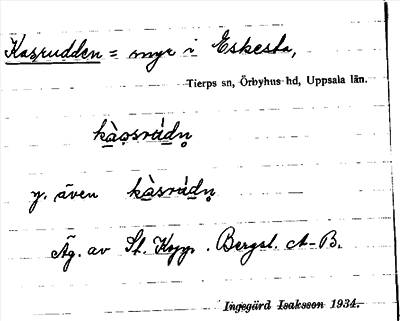 Kasrudden = myr i Eskesta,
Tierps sn, Örbyhus hd, Uppsala län.
kàosrúdn̥
y. även kàsrúdn̥
Äg. av St. Kopp. Bergsl. A-B.
Ingegärd Isaksson 1934.